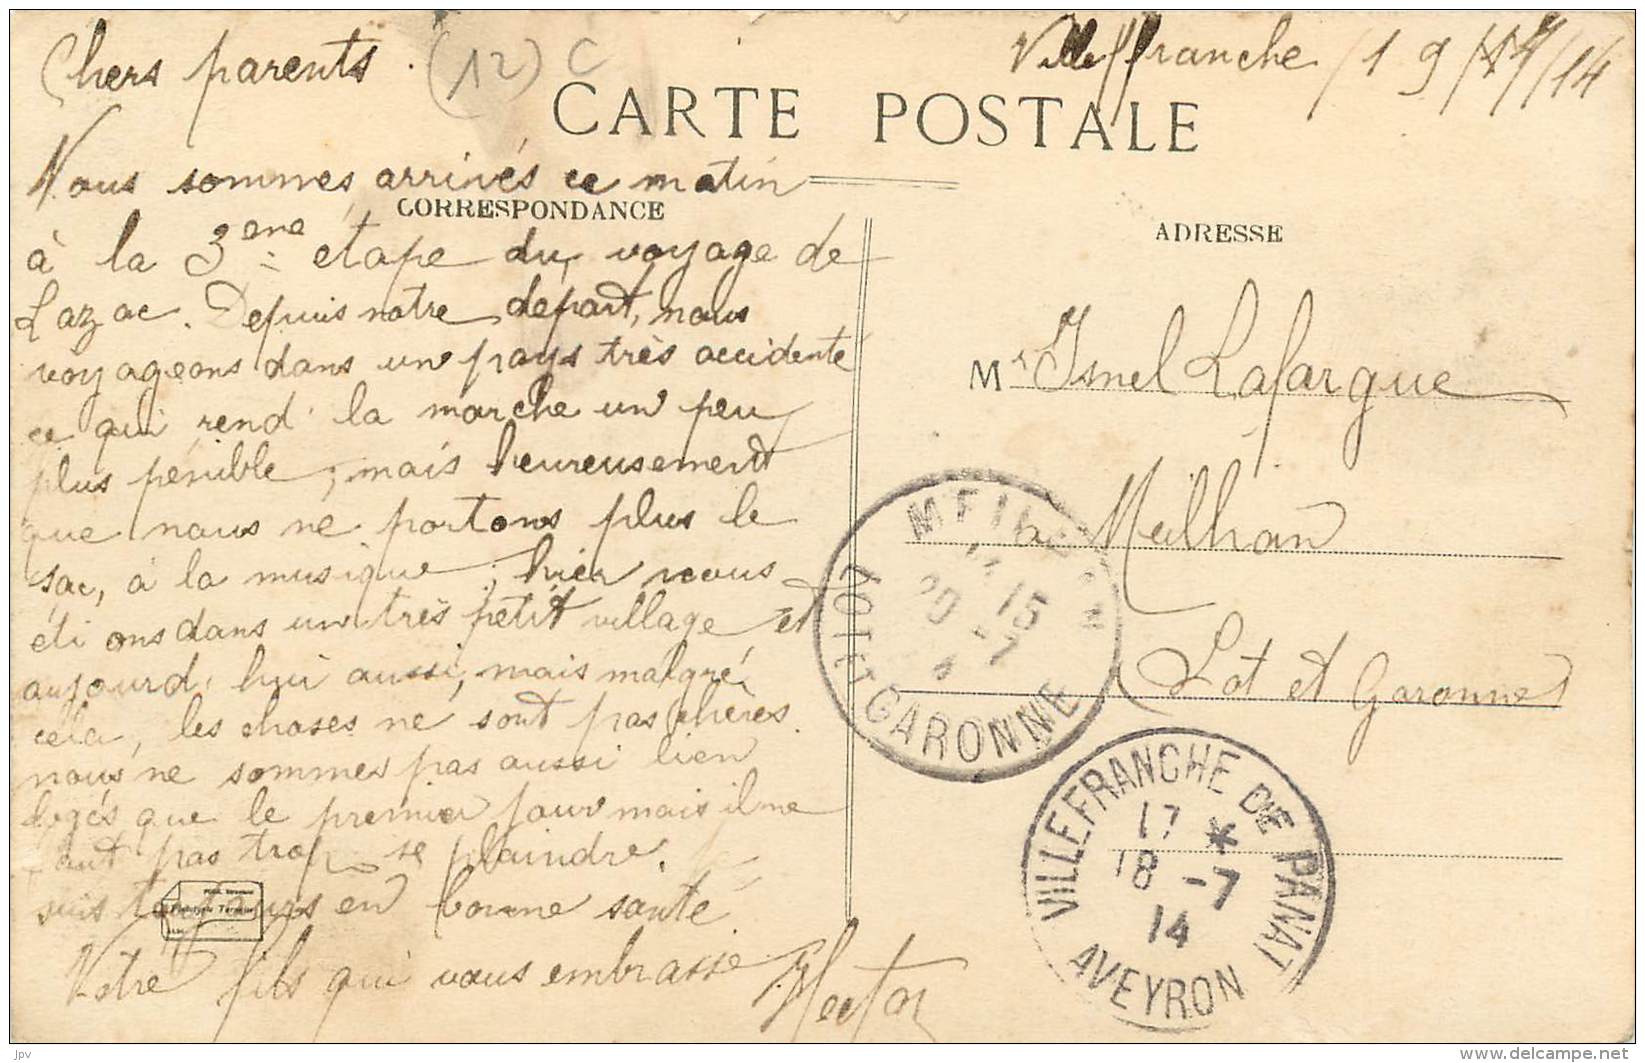 Chers parents. (12) C
Villefranche / 19/7/14
CARTE POSTALE
Nous sommes arrivés ce matin
CORRESPONDANCE
à la 3ème étape du voyage de
Lazac. Depuis notre départ, nous
voyageons dans un pays très accidenté
ce qui rend la marche un peu
plus pénible, mais heureusement
que nous ne portons plus le
sac, à la musique; hier nous
étions dans un très petit village et
aujourd'hui aussi, mais malgré
cela, les choses ne sont pas chères.
nous ne sommes pas aussi bien
logés que le premier jour mais il ne
faut pas trop se plaindre. je
suis toujours en bonne santé
Votre fils qui vous embrasse
Hector
ADRESSE
Mr Ismel Lafargue
à Meilhan
Lot et Garonne
MEILHAN
15
20 -7
LOT ET GARONNE
VILLEFRANCHE DE PANAT
17 *
18 -7
14
AVEYRON
jpv
www.delcampe.net